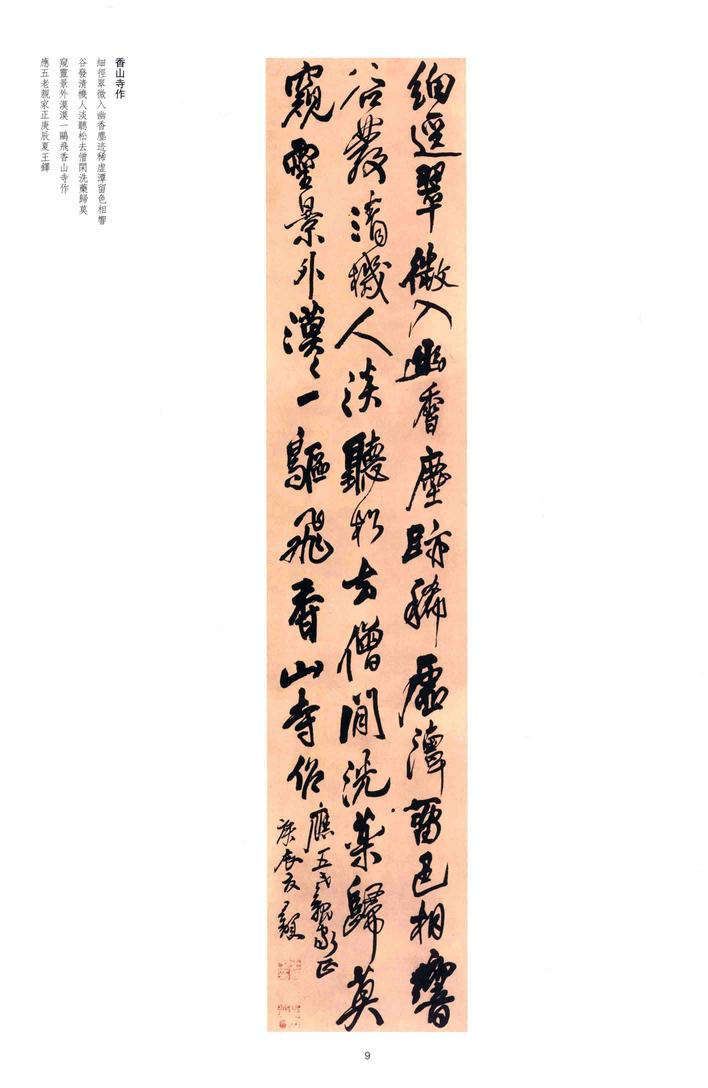 香山寺作
細徑翠微入幽香塵迹稀虛潭留色相響
谷發清機人淡聽松去僧閑洗藥歸莫
窺靈景外漠漠一鷗飛香山寺作
應五老親家正庚辰夏王鐸
細逕翠微入幽香塵跡稀虛潭留色相響
谷發清機人淡聽松去僧閒洗藥歸莫
窺靈景外漠〻一鷗飛香山寺作
應五老親家正
庚辰夏王鐸
9